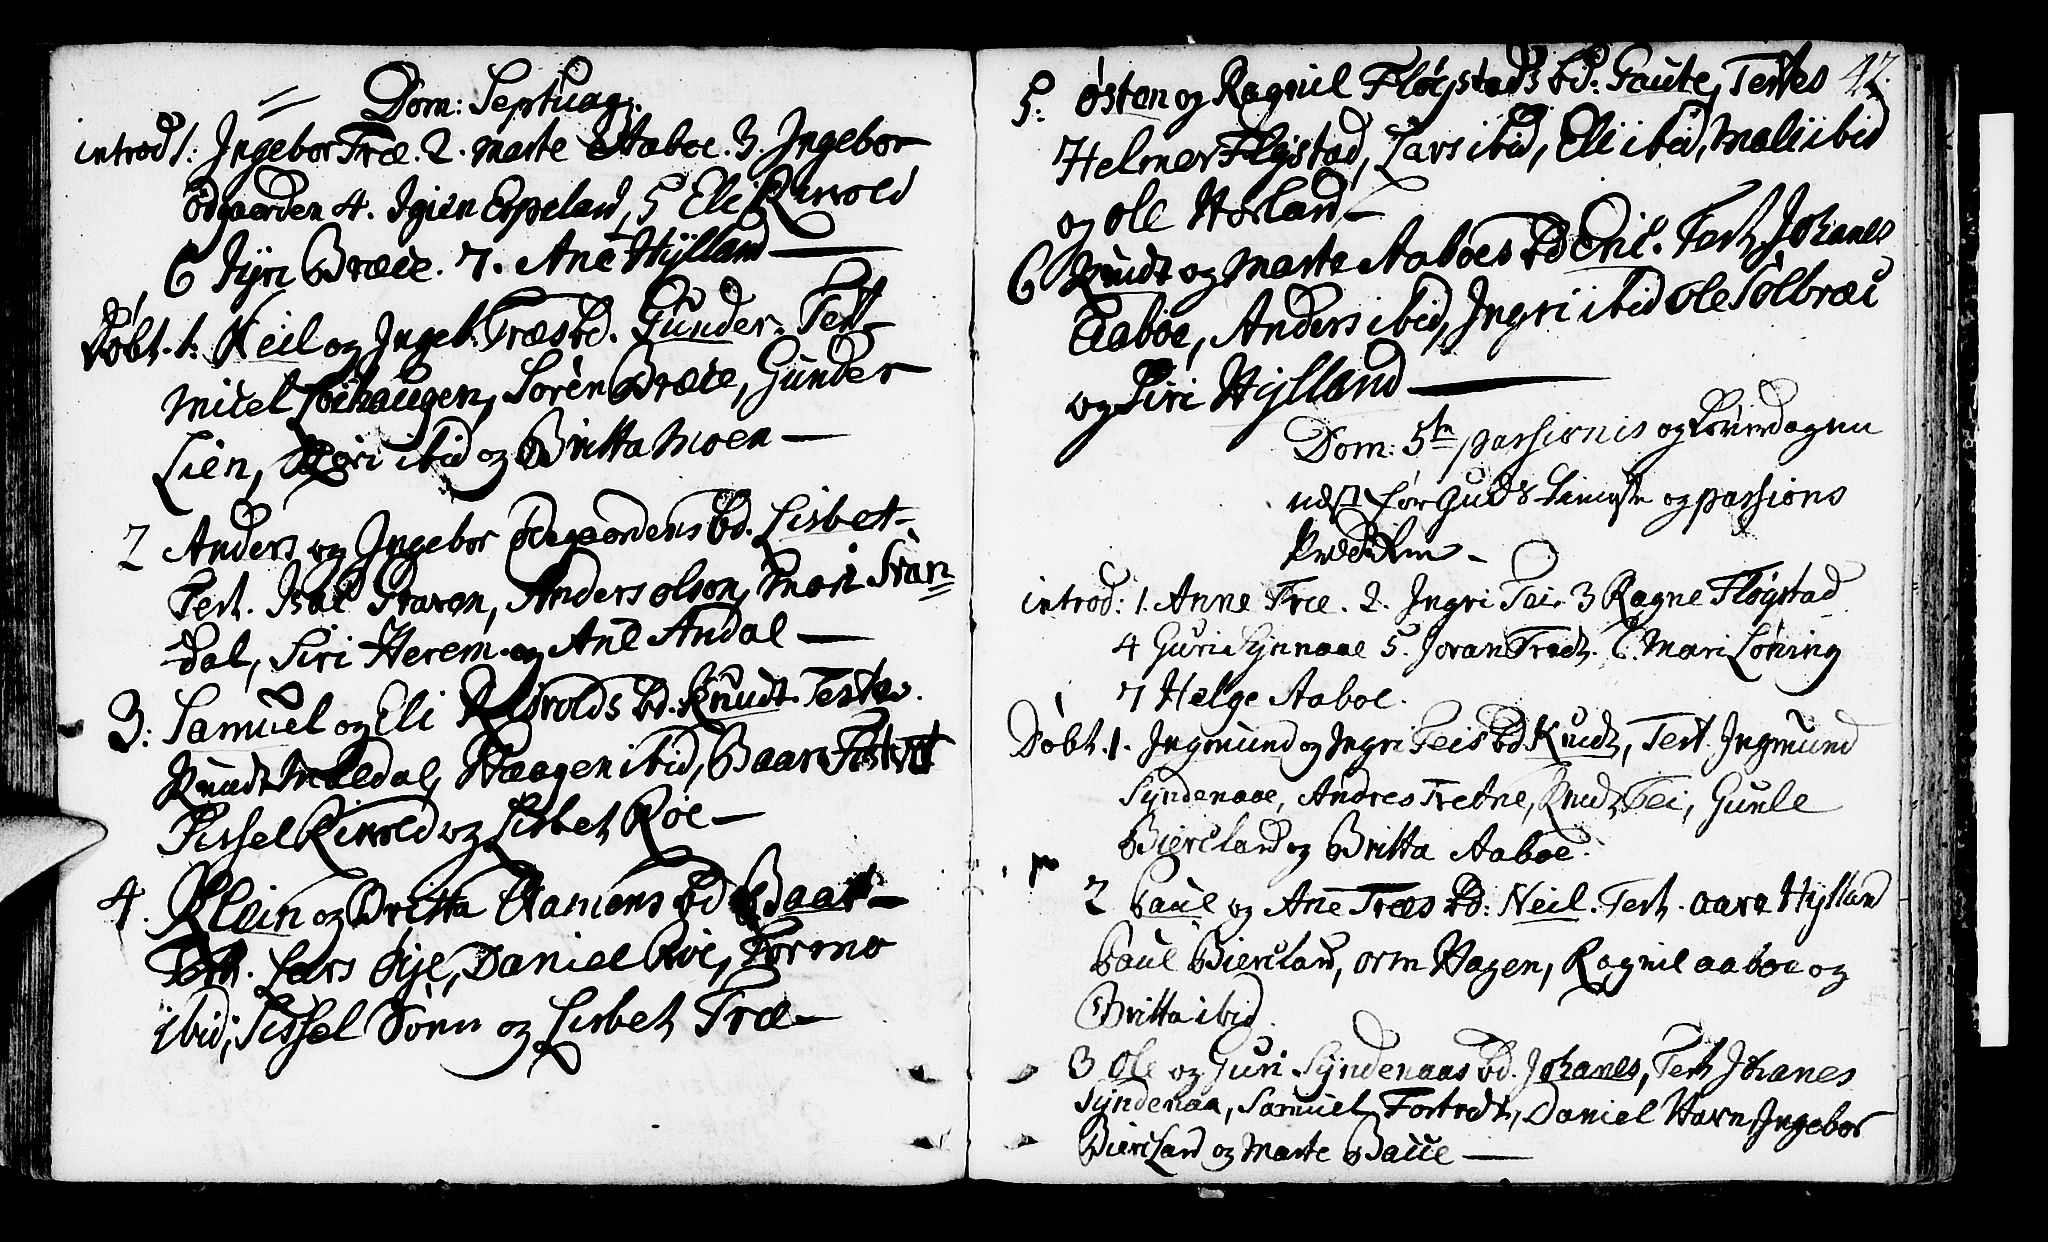 Dom: Septuag:
introd 1: Ingebor Træ. 2. Marte Aaboe. 3. Ingebor
Ødgaarden 4. Igien Espeland, 5 Eli Rirvold
6 Jyri Bræe. 7. Ane Hylland
Døbt. 1: Neil og Ingeb: Træs bd. Gunder. Test
Micel Løihaugen, Søren Bræe, Gunder
Lien, Kari ibid og Britta Moen
2 Anders og Ingebor Ødegaardens bd. Lisbet
Test. Isac Graren, Anders Olson, Mari Svan
dal, Siri Herem og Ane Andal
3: Samuel og Eli Rirvolds bd. Knudt. Testes.
Knudt Mældal, Haagen ibid, Baar
Sissel Rirvold og Lisbet Røe
4. Klein og Britta bd Baar
Test. Lars Øye, Daniel Røe, Tormo
ibid, Sissel Sønn og Lisbet Træ
42.
5: Østen og Ragnil Fløgstads bd: Gaute, Testes
Helmer Fløgstad, Lars ibid, Eli ibid, Mali ibid
og Ole Horland
6 Knudt og Marte Aaboes bd Eril. Test Johanes
Aaboe, Anders ibid, Ingri ibid Ole Sølbræe
og Siri Hylland
Dom: 5te passionis og Løverdagen
næst før Guds tieneste og passions
Prædiken
introd: 1. Anne Træ. 2. Ingri Tei. 3 Ragne Fløgstad
4 Guri Synnaae 5. Joran Trædt. 6. Mari Løning
7 Helge Aaboe.
Døbt. 1. Ingmund og Ingri Teis bd. Knudt, Test. Ingmund
Syndenaae, Andres Tretne, Knudt Tei, Gunle
Biercland og Britta Aaboe.
2 Paul og Ane Træs bd: Neil. Test. Aare Hylland
Paul Biercland, Orm Hagen, Ragnil Aaboe og
Britta ibid.
3 Ole og Guri Syndenaas bd. Johanes, Test Johanes
Syndenaa, Samuel Fortredt, Daniel Havn, Ingebor
Biercland og Marte Baue